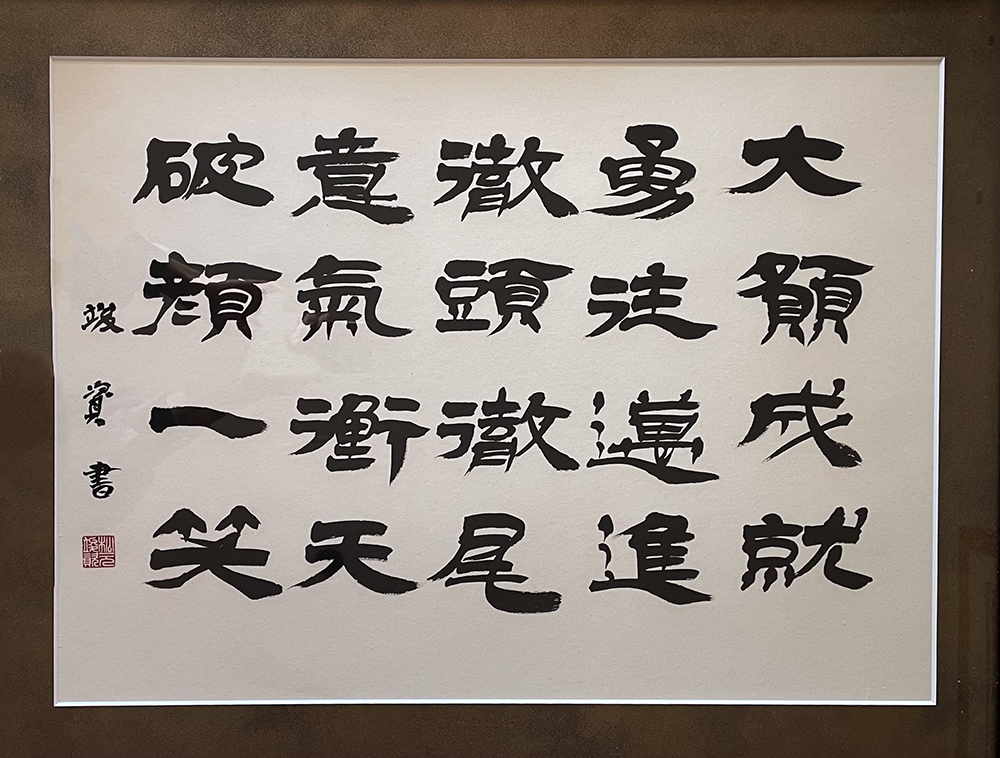 大願成就
勇往邁進
徹頭徹尾
意氣衝天
破顔一笑
竣資書